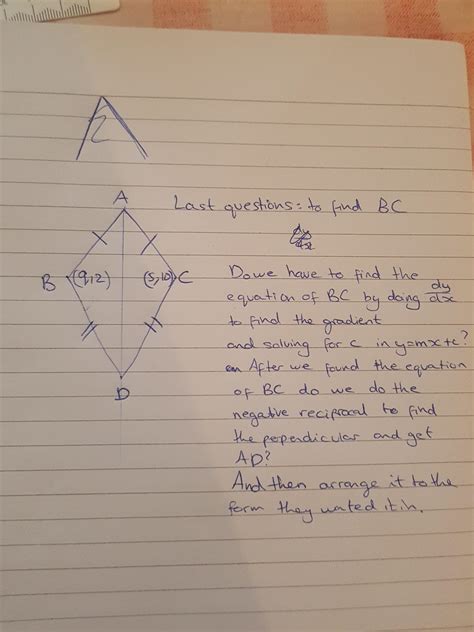 A
Last questions: to find BC
B (9,2) (5,10) C
D
Do we have to find the
equation of BC by doing dy/dx
to find the gradient
and solving for c in y=mx+c?
After we found the equation
of BC do we do the
negative reciprocal to find
the perpendicular and get
AD?
And then arrange it to the
form they wanted it in.